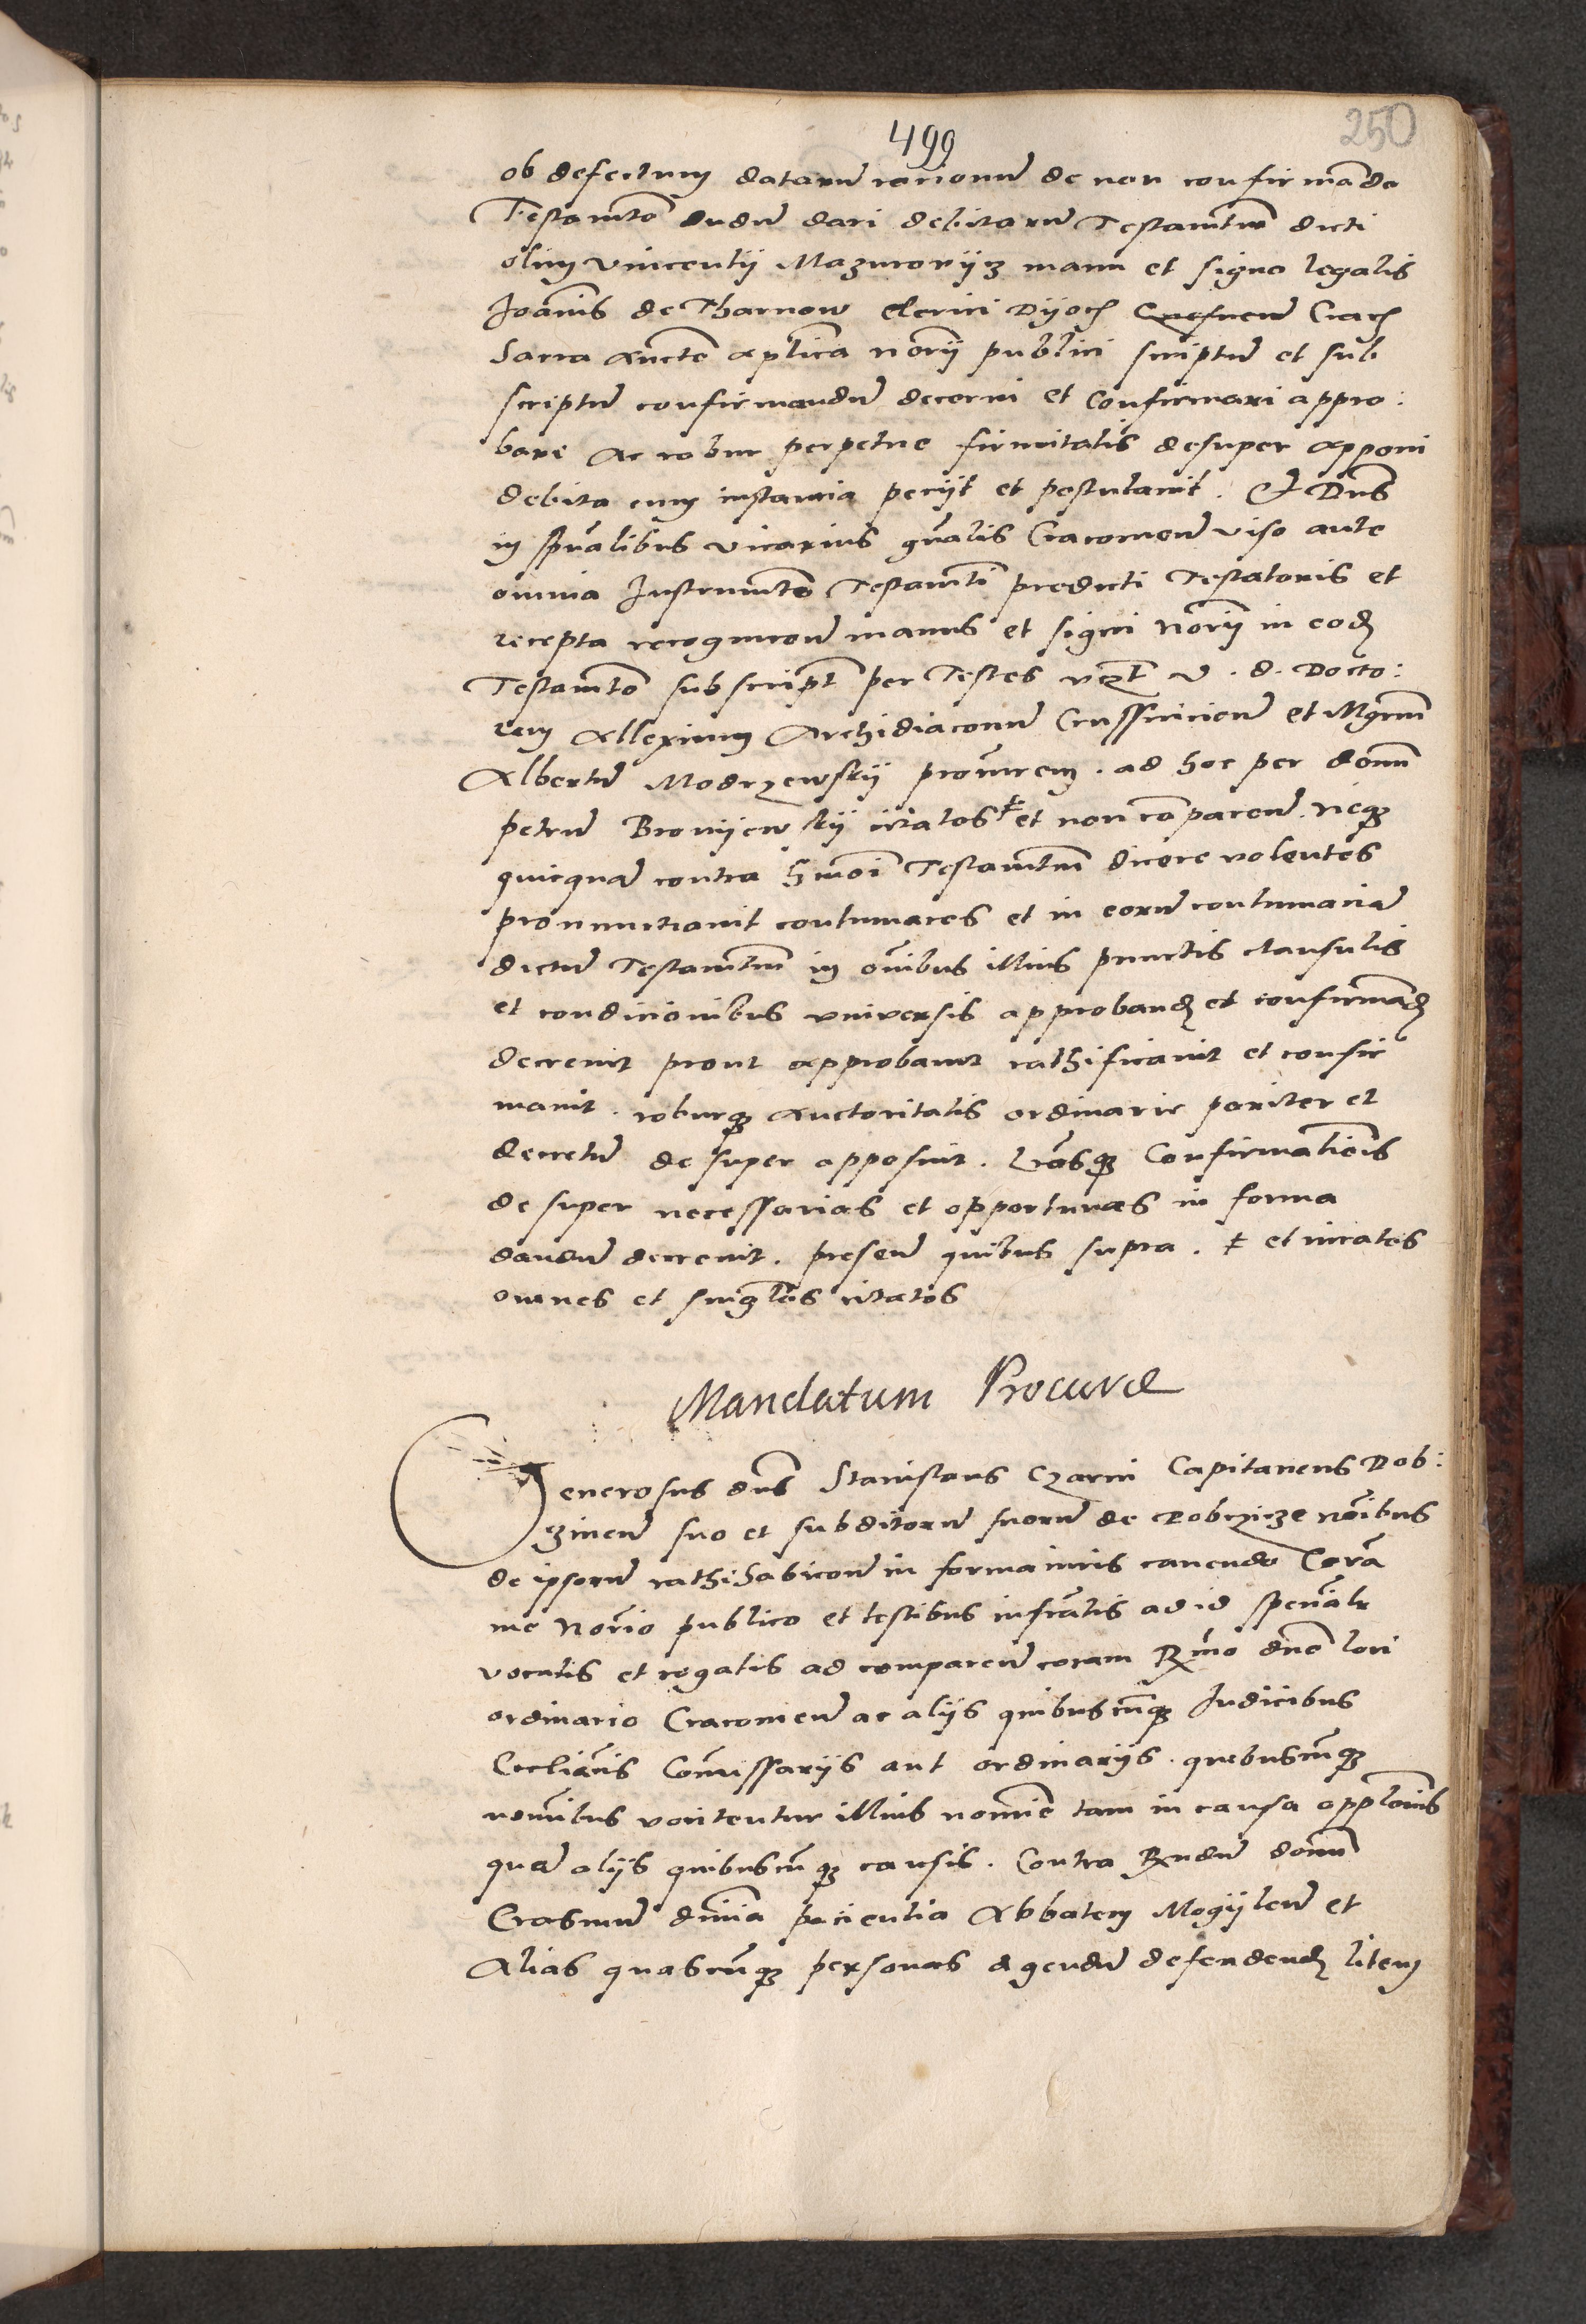 499
250
ob defectum dataru racionu de non confirmado
Testamto dudu dari debitaru Testamtum dicti
olim Vincentij Mazurowijz manu et signo legalis
Joanis de Tharnow Clerici Dyoc Gnesnen Crac
Sacra aucte aplica norij publici scriptu et sub
scriptu confirmandu decerni et Confirmari appro:
bari ac robur perpetue firmitatis desuper apponi
debita cum instancia pecijt et postulavit. Et Dns
in spualibus vicarius gnalis Cracovien viso ante
omnia Instrumto Testamti predicti Testatoris et
recepta recognicoe manus et signi norij in eod
Testamto subscript per Testes vzt V. d. Docto:
rem Allexium Archidiaconu Crussvicien et Mgrum
Albertu Modrzewskij procurem. ad hoc per domu
petru Bronijewskij citatos et non coparen. neq
quicqua contra hmoi Testamtum dicere volentes
pronunctiavit contumaces et in eoru contumacia
dictu Testamtum in oibus illius punctis clausulis
et condicionibus universis approband et confirmad
decrevit prout approbavit rathificavit et confir
mavit. roburq auctoritatis ordinarie pariter et
decretu desuper apposuit. Lrasq Confirmationis
desuper necessarias et opportunas in forma
dandu decrevit. presen quibus supra. et citatos
omnes et singlos citatos
Mandatum Procurae
Generosus dns Stanislaus Czarni Capitaneus Dob:
zinen suo et subditoru suoru de Dobczicze noibus
de ipsoru rathihabicoe in forma iuris cavendo Cora
me norio publico et testibus infratis ad id specialr
vocatis et rogatis ad comparen coram Rmo dno loci
ordinario Cracovien ac alijs quibuscuq Judicibus
Ecclianis Comissarijs aut ordinarijs. quibuscumq
nominibus vocitentur illius nomine tam in causa applonis
qua alijs quibuscuq causis. Contra Rndu domu
Erasmu divina paciencia Abbatem Mogijlen et
Alias quascuq personas agendu defendend litem